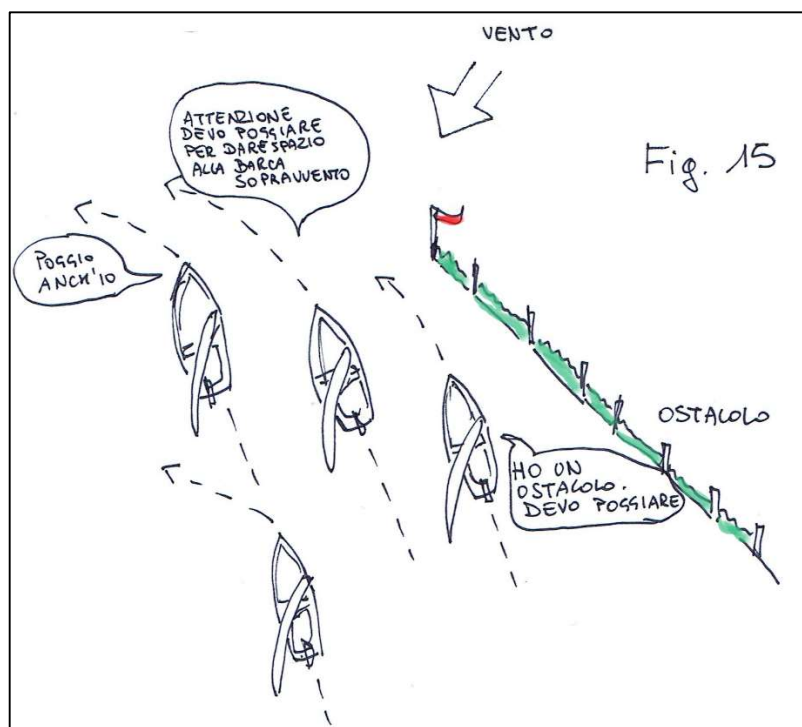 VENTO
ATTENZIONE
DEVO POGGIARE
PER DARE SPAZIO
ALLA BARCA
SOPRAVVENTO
Fig. 15
POGGIO
ANCH'IO
OSTACOLO
HO UN
OSTACOLO.
DEVO POGGIARE